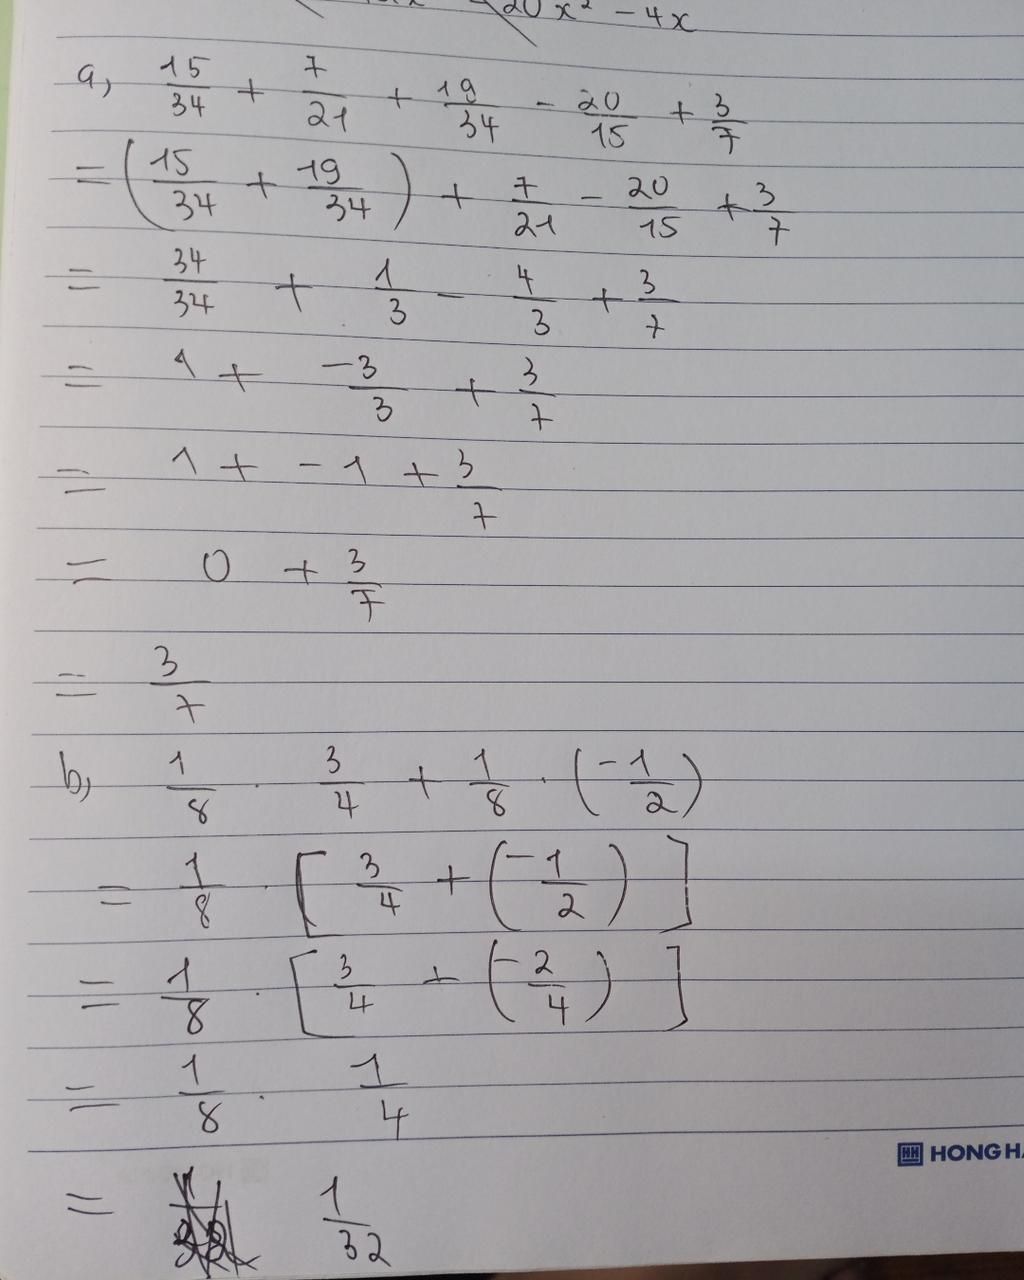 20x² - 4x
a, 15/34 + 7/21 + 19/34 - 20/15 + 3/7
= (15/34 + 19/34) + 7/21 - 20/15 + 3/7
= 34/34 + 1/3 - 4/3 + 3/7
= 1 + -3/3 + 3/7
= 1 + -1 + 3/7
= 0 + 3/7
= 3/7
b, 1/8 . 3/4 + 1/8 . (-1/2)
= 1/8 . [3/4 + (-1/2)]
= 1/8 . [3/4 + (-2/4)]
= 1/8 . 1/4
HONG HA
= 1/32